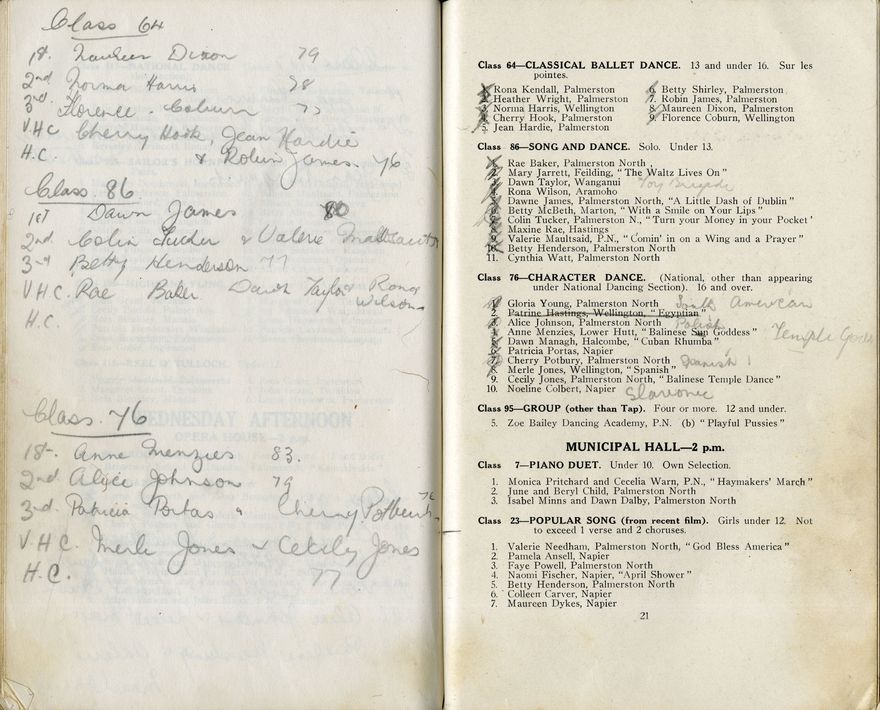 Class 64
1st. Maureen Dixon 79
2nd Norma Harris 78
3rd. Florence Coburn 77
V.H.C Cherry Hook, Jean Hardie
H.C. & Robin James. 76
Class. 86
1st Dawn James 80
2nd Colin Tucker & Valerie
3rd Betty Henderson 77
V.H.C. Rae Baker Dawn Taylor Rona
Wilson
H.C.
Class. 76
1st. Anne Menzies 83.
2nd Alice Johnson 79
3rd Patricia Portas & Cherry Potbury
78
V.H.C. Merle Jones & Cecily Jones
H.C. 77
Class 64—CLASSICAL BALLET DANCE. 13 and under 16. Sur les
pointes.
1. Rona Kendall, Palmerston
2. Heather Wright, Palmerston
3. Norma Harris, Wellington
4. Cherry Hook, Palmerston
5. Jean Hardie, Palmerston
6. Betty Shirley, Palmerston
7. Robin James, Palmerston
8. Maureen Dixon, Palmerston
9. Florence Coburn, Wellington
Class 86—SONG AND DANCE. Solo. Under 13.
1. Rae Baker, Palmerston North
2. Mary Jarrett, Feilding, "The Waltz Lives On"
3. Dawn Taylor, Wanganui Toy Brigade
4. Rona Wilson, Aramoho
5. Dawne James, Palmerston North, "A Little Dash of Dublin"
6. Betty McBeth, Marton, "With a Smile on Your Lips"
7. Colin Tucker, Palmerston N., "Turn your Money in your Pocket'
8. Maxine Rae, Hastings
9. Valerie Maultsaid, P.N., "Comin' in on a Wing and a Prayer"
10. Betty Henderson, Palmerston North
11. Cynthia Watt, Palmerston North
Class 76—CHARACTER DANCE. (National, other than appearing
under National Dancing Section). 16 and over.
1. Gloria Young, Palmerston North South American
2. Patrine Hastings, Wellington, "Egyptian"
3. Alice Johnson, Palmerston North Polish
4. Anne Menzies, Lower Hutt, "Balinese Sun Goddess" Temple Gods
5. Dawn Managh, Halcombe, "Cuban Rhumba"
6. Patricia Portas, Napier
7. Cherry Potbury, Palmerston North Spanish
8. Merle Jones, Wellington, "Spanish"
9. Cecily Jones, Palmerston North, "Balinese Temple Dance"
10. Noeline Colbert, Napier Slavonic
Class 95—GROUP (other than Tap). Four or more. 12 and under.
5. Zoe Bailey Dancing Academy, P.N. (b) "Playful Pussies"
MUNICIPAL HALL—2 p.m.
Class 7—PIANO DUET. Under 10. Own Selection.
1. Monica Pritchard and Cecelia Warn, P.N., "Haymakers' March"
2. June and Beryl Child, Palmerston North
3. Isabel Minns and Dawn Dalby, Palmerston North
Class 23—POPULAR SONG (from recent film). Girls under 12. Not
to exceed 1 verse and 2 choruses.
1. Valerie Needham, Palmerston North, "God Bless America"
2. Pamela Ansell, Napier
3. Faye Powell, Palmerston North
4. Naomi Fischer, Napier, "April Shower"
5. Betty Henderson, Palmerston North
6. Colleen Carver, Napier
7. Maureen Dykes, Napier
21